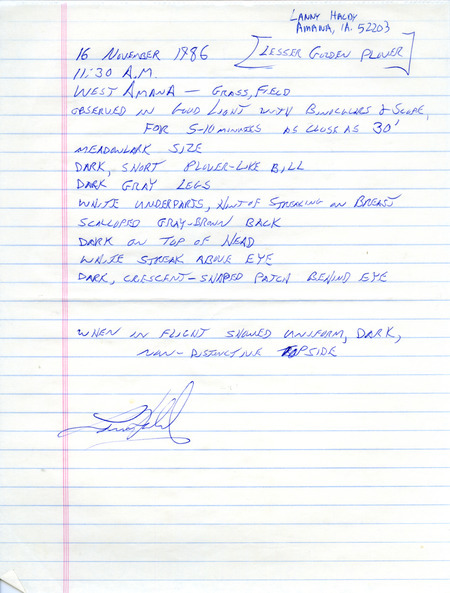 LANNY HALDY
AMANA, IA. 52203
16 NOVEMBER 1986 [LESSER GOLDEN PLOVER]
11:30 A.M.
WEST AMANA — GRASS, FIELD
OBSERVED IN GOOD LIGHT WITH BINOCULARS & SCOPE,
FOR 5-10 MINUTES AS CLOSE AS 30'
MEADOWLARK SIZE
DARK, SHORT PLOVER-LIKE BILL
DARK GRAY LEGS
WHITE UNDERPARTS, HINT OF STREAKING ON BREAST
SCALLOPED GRAY-BROWN BACK
DARK ON TOP OF HEAD
WHITE STREAK ABOVE EYE
DARK, CRESCENT-SHAPED PATCH BEHIND EYE
WHEN IN FLIGHT SHOWED UNIFORM, DARK,
NON-DISTINCTIVE TOPSIDE